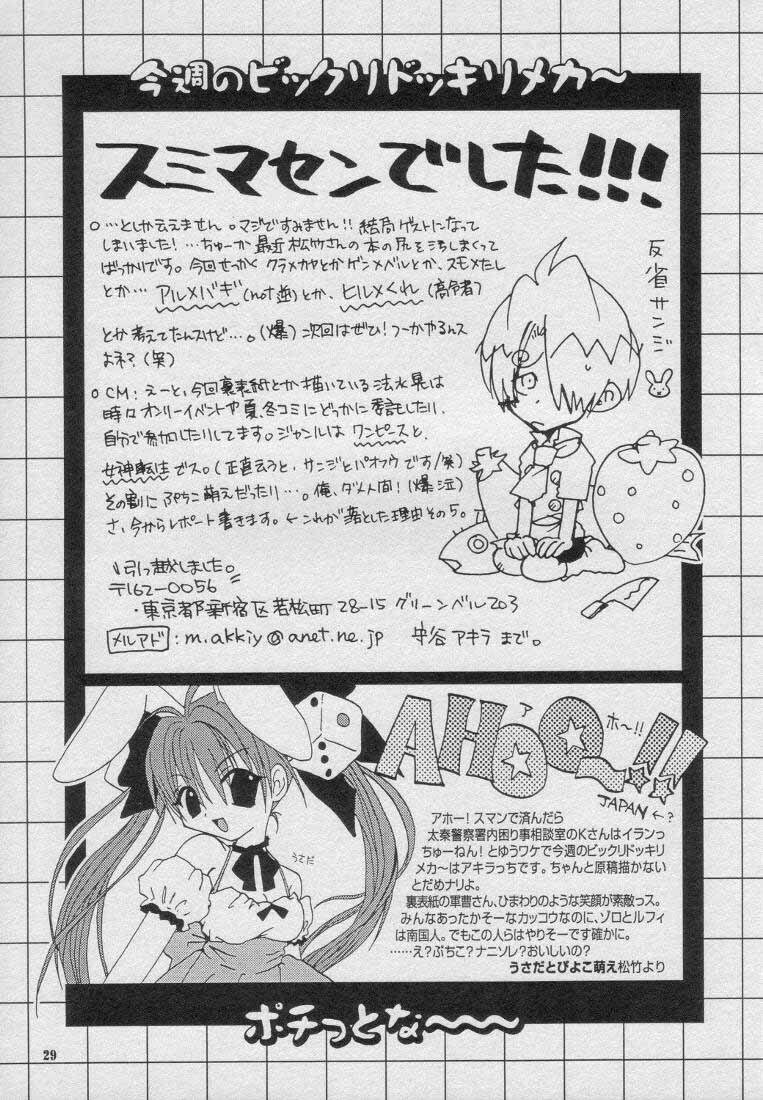 今週のビックリドッキリメカ〜
スミマセンでした!!!
○…としか云えません。マジですみません!! 結局ゲストになって
しまいました!…ちゅーか最近松竹さんの本の尻を汚しまくって
ばっかりです。今回せっかくクラメカヤとかゲンメベルとか、スモメたし
とか…アルメバギ(not逆)とか、ヒルメくれ(高令者)
とか考えてたんスけど…。(爆) 次回はぜひ!つーかやるんス
よネ?(笑)
反省サンジ
○CM:えーと、今回裏表紙とか描いている法水晃は
時々オンリーイベントや夏、冬コミにどっかに委託したり、
自分で参加したりしてます。ジャンルはワンピースと、
女神転生でス。(正直云うと、サンジとパオフウです/笑)
その割にぷちこ萌えだったり…。俺、ダメ人間!(爆泣)
さ、今からレポート書きます。←これが落とした理由その5。
引っ越しました。
〒162-0056
・東京都新宿区若松町28-15 グリーンベル203
メルアド:m.akkiy@anet.ne.jp 守谷アキラまで。
AHOO〜!!
ア
ホ〜!!
JAPAN←?
うさだ
アホー!スマンで済んだら
太秦警察署内困り事相談室のKさんはイランっ
ちゅーねん!とゆうワケで今週のビックリドッキリ
メカ〜はアキラっちです。ちゃんと原稿描かない
とだめナリよ。
裏表紙の軍曹さん、ひまわりのような笑顔が素敵っス。
みんなあったかそーなカッコウなのに、ゾロとルフィ
は南国人。でもこの人らはやりそーです確かに。
……え?ぷちこ?ナニソレ?おいしいの?
うさだとぴよこ萌え松竹より
ポチっとな〜〜〜
29